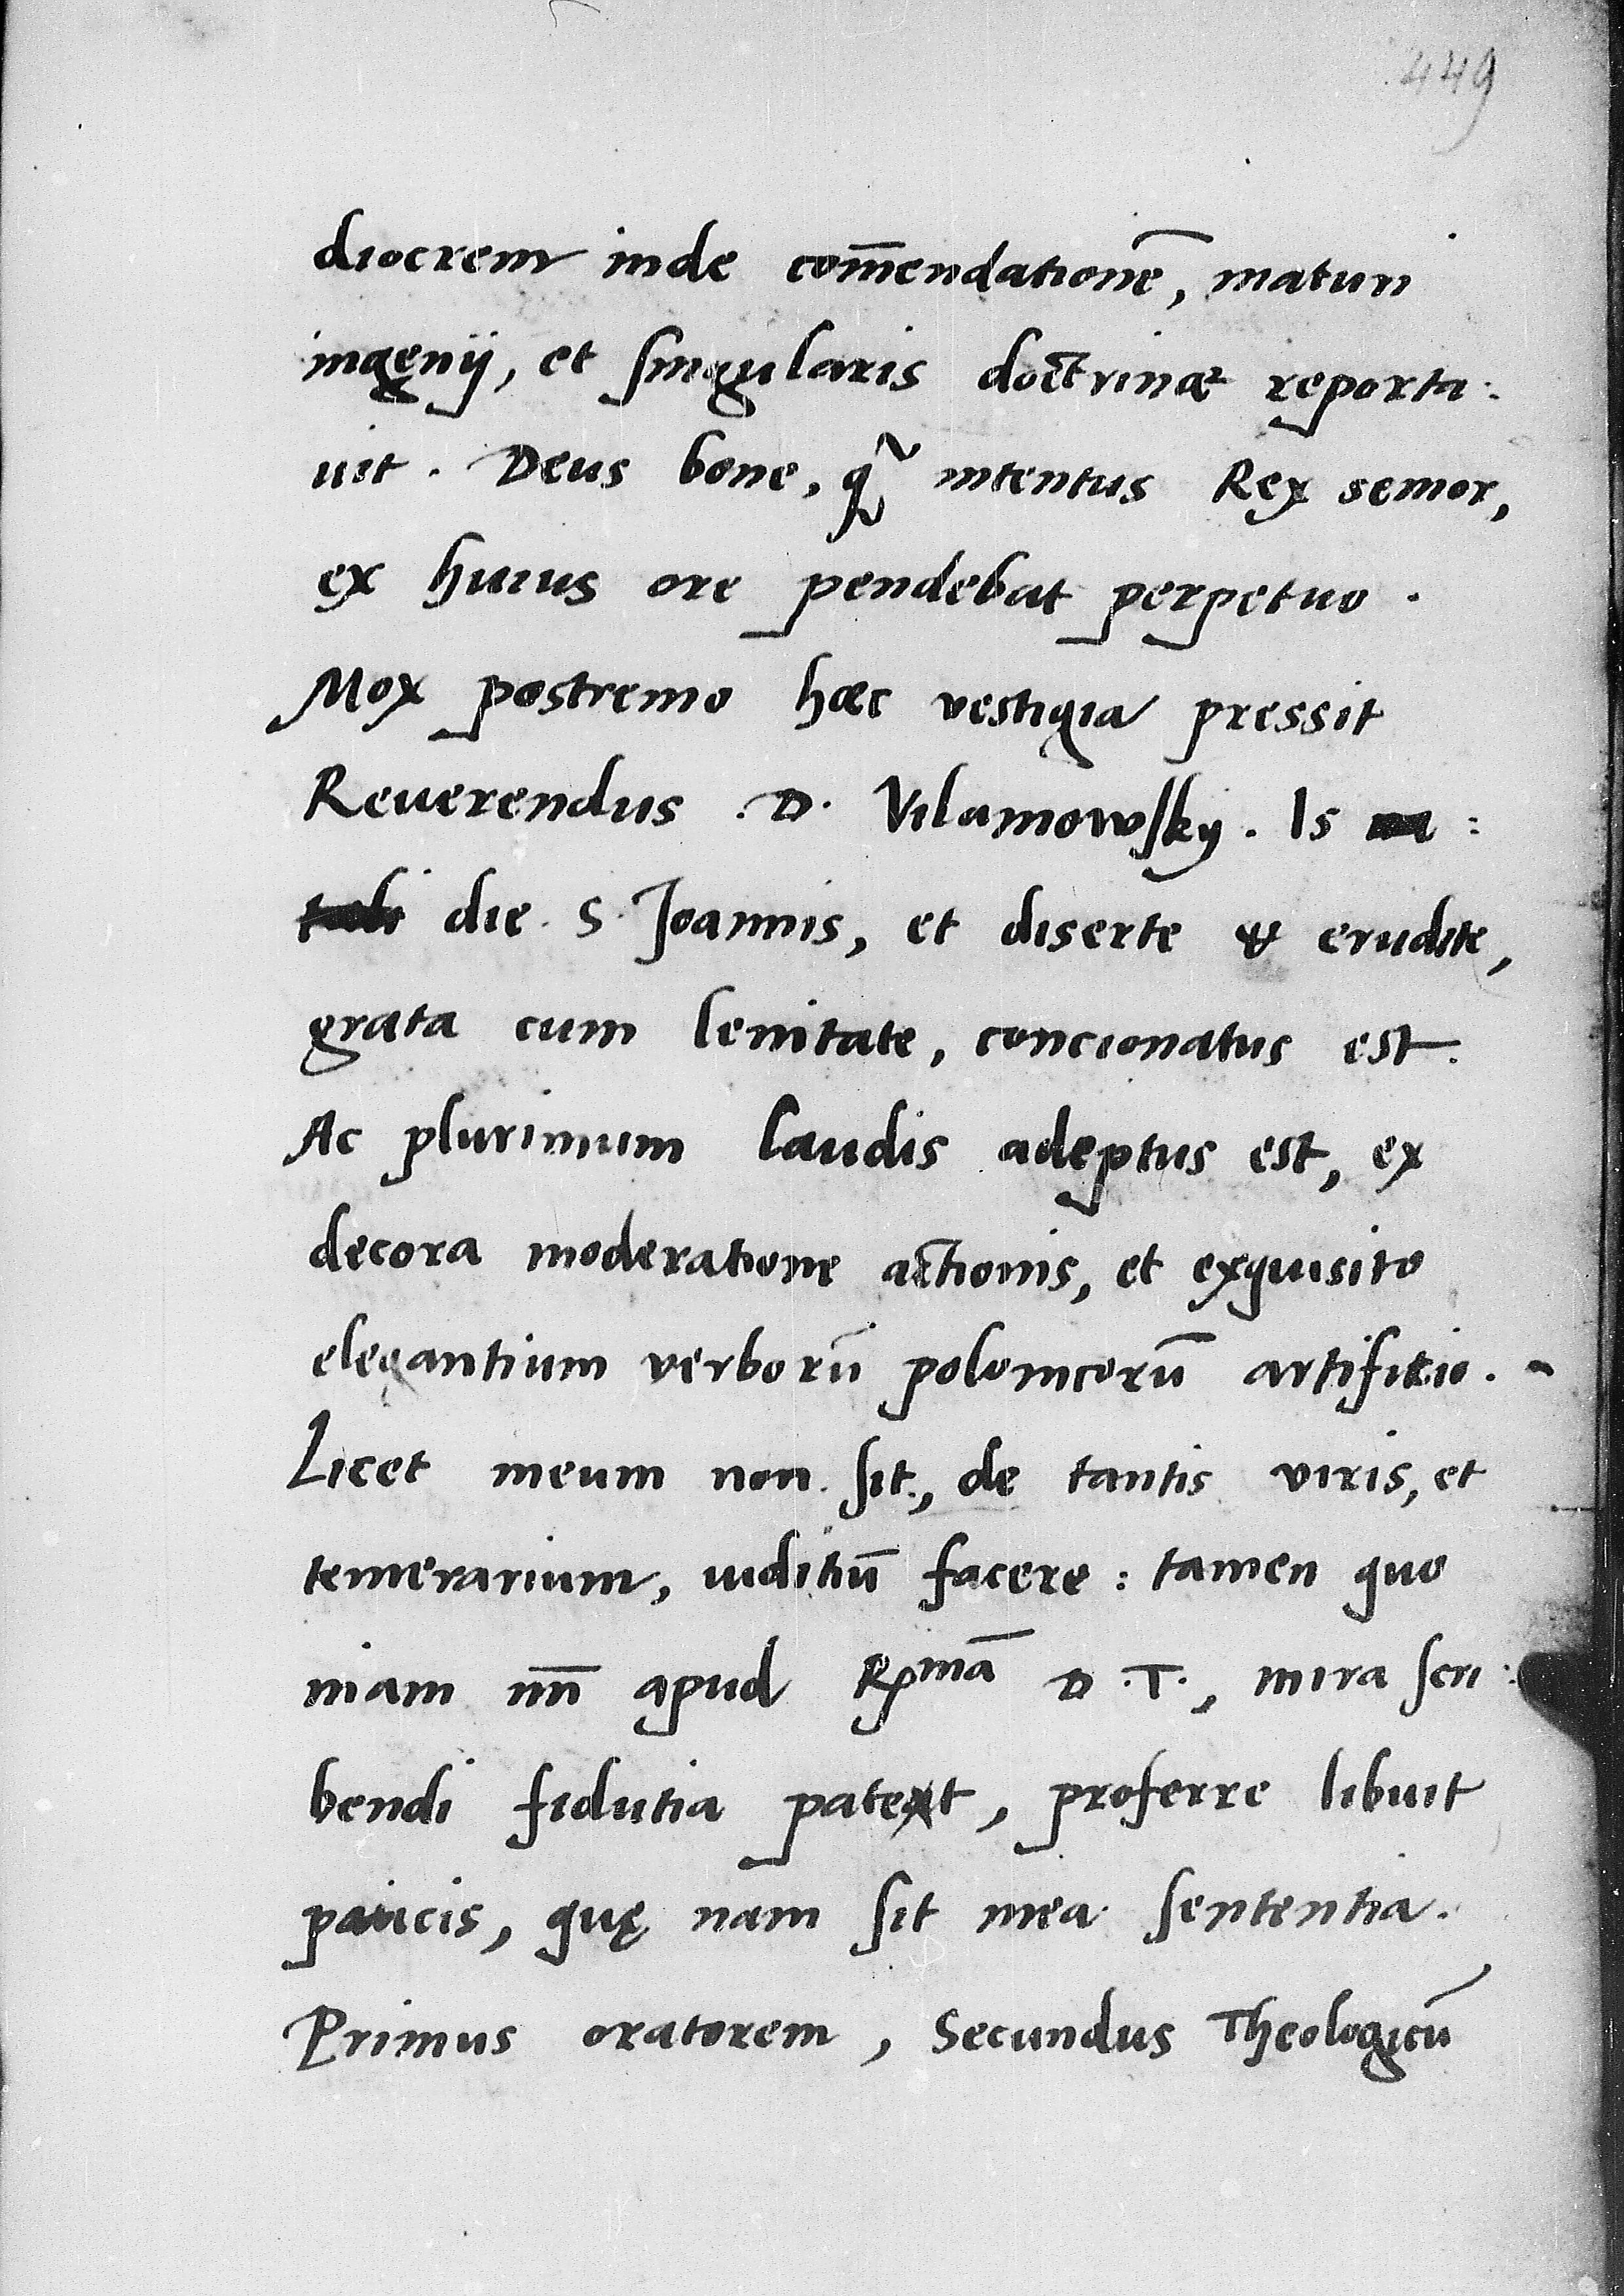 449
diocrem inde com̄endationē, maturi
ingenij, et singularis doctrinæ reporta:
uit. Deus bone, q̃ intentus Rex senior,
ex huius ore pendebat perpetuo.
Mox postremo hæc vestigia pressit
Reuerendus .D. Vilamowsky. Is na:
tali die. S. Joannis, et diserte & erudite,
grata cum lenitate, concionatus est.
Ac plurimum laudis adeptus est, ex
decora moderatione actionis, et exquisito
elegantium verborū polonicorū artificio.
Licet meum non sit, de tantis viris, et
temerarium, iuditiū facere: tamen quo
niam apud Rmā D.T., mira scri:
bendi fidutia patet, proferre libuit
paucis, quę nam sit mea sententia.
Primus oratorem, Secundus Theologicū